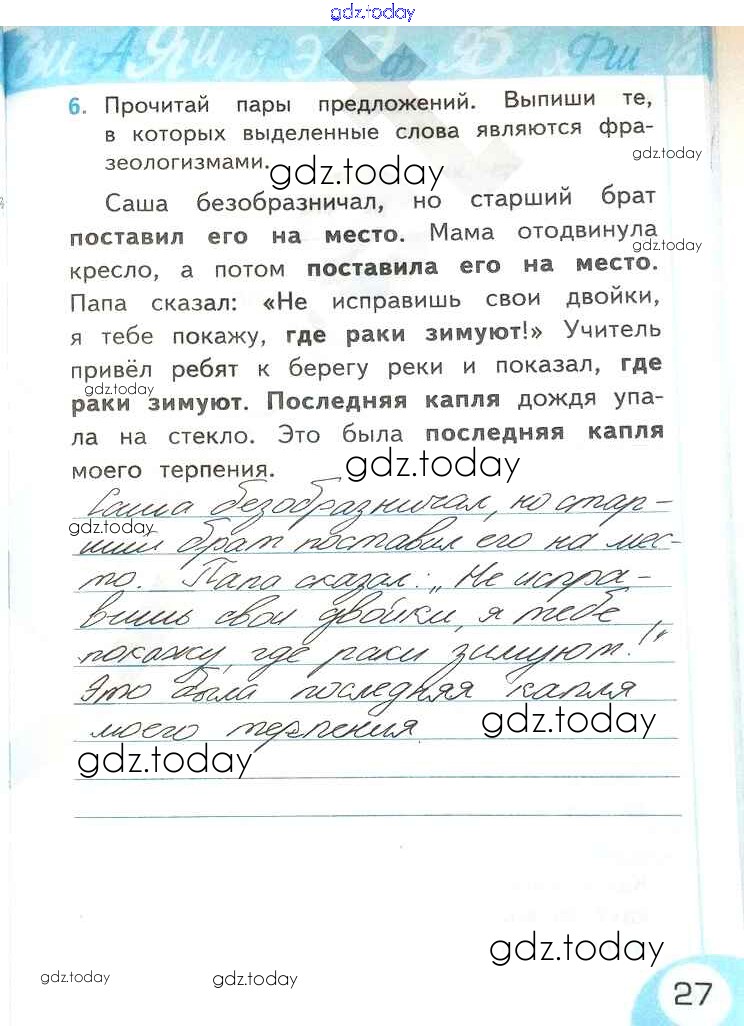 gdz.today
6. Прочитай пары предложений. Выпиши те,
в которых выделенные слова являются фра-
gdz.today
зеологизмами.
gdz.today
Саша безобразничал, но старший брат
поставил его на место. Мама отодвинула
gdz.today
кресло, а потом поставила его на место.
Папа сказал: «Не исправишь свои двойки,
я тебе покажу, где раки зимуют!» Учитель
привёл ребят к берегу реки и показал, где
gdz.today
раки зимуют. Последняя капля дождя упа-
ла на стекло. Это была последняя капля
моего терпения.
gdz.today
Саша безобразничал, но стар-
gdz.today
ший брат поставил его на мес-
то. Папа сказал: „Не испра-
вишь свои двойки, я тебе
покажу, где раки зимуют!"
Это была последняя капля
моего терпения.
gdz.today
gdz.today
gdz.today
gdz.today
gdz.today
27